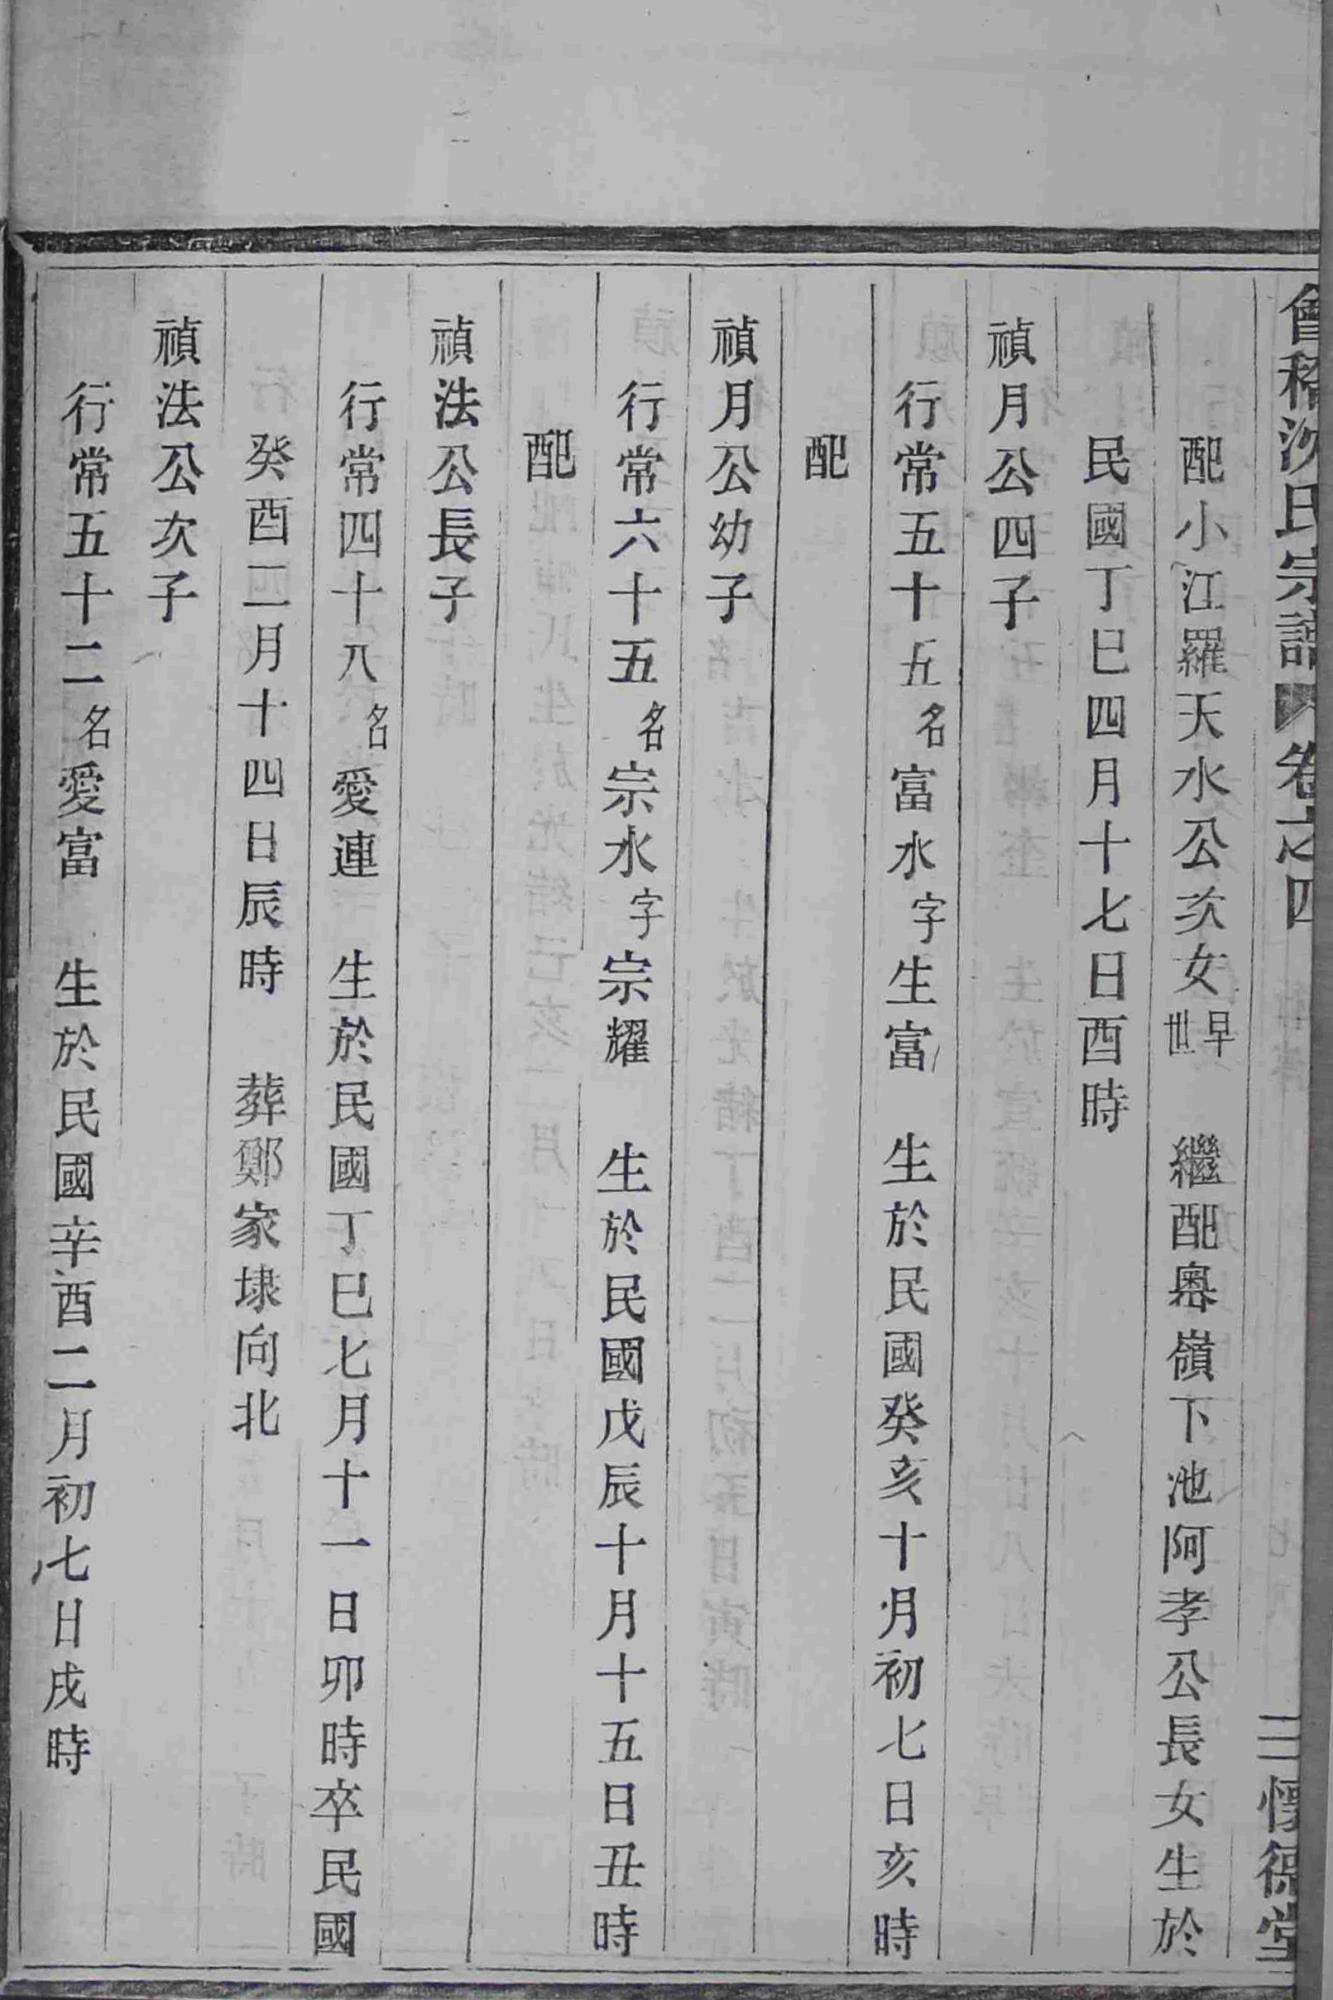 會稽沈氏宗譜 卷之四 三懷德堂
配小江羅天水公次女早世 繼配粵嶺下池阿孝公長女生於
民國丁巳四月十七日酉時
禎月公四子
行常五十五名富水字生富 生於民國癸亥十月初七日亥時
配
禎月公幼子
行常六十五名宗水字宗耀 生於民國戊辰十月十五日丑時
配
禎法公長子
行常四十八名愛連 生於民國丁巳七月十一日卯時卒民國
癸酉二月十四日辰時 葬鄭家埭向北
禎法公次子
行常五十二名愛富 生於民國辛酉二月初七日戌時